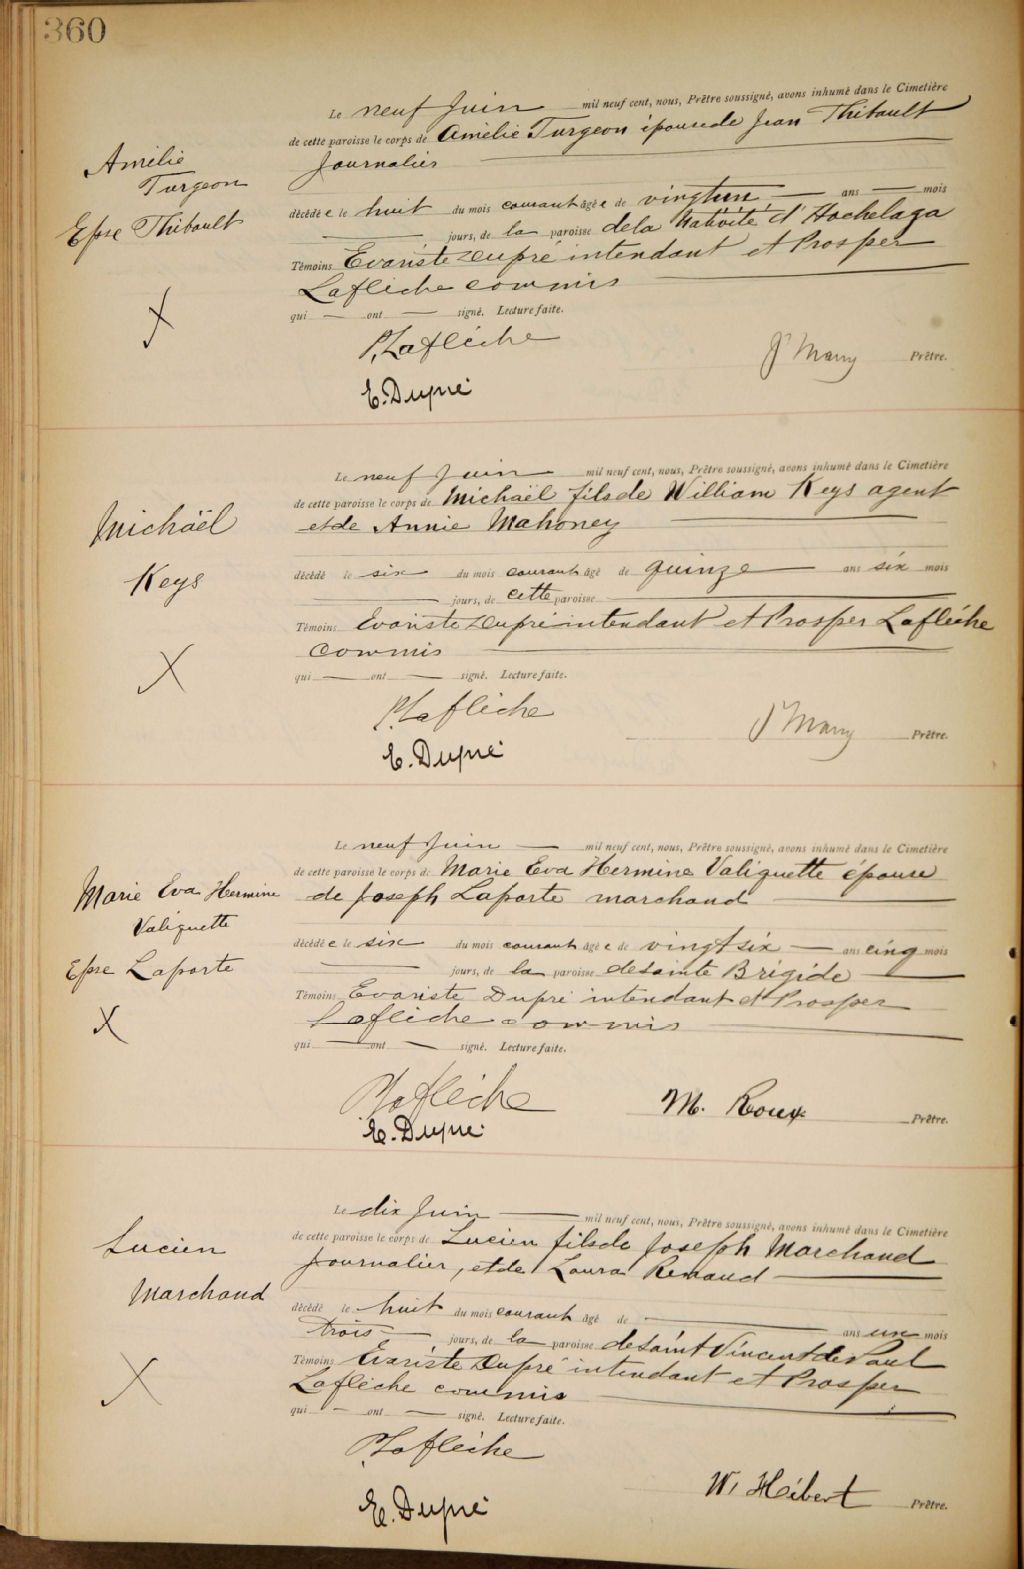 360
Le neuf Juin mil neuf cent, nous, Prêtre soussigné, avons inhumé dans le Cimetière
de cette paroisse le corps de Amélie Turgeon épouse de Jean Thibault
Journalier
Amélie
Turgeon
Epse Thibault
décédée le huit du mois courant âgée de vingt un ans mois
jours, de la paroisse de la Nativité d'Hochelaga
Témoins Evariste Dupré intendant et Prosper
Laflèche commis
qui ont signé. Lecture faite.
X
P. Laflèche
Prêtre.
E. Dupré
Le neuf Juin mil neuf cent, nous, Prêtre soussigné, avons inhumé dans le Cimetière
de cette paroisse le corps de Michaël fils de William Keys agent
et de Annie Mahoney
Michaël
Keys
décédé le six du mois courant âgé de quinze ans six mois
jours, de cette paroisse
Témoins Evariste Dupré intendant et Prosper Laflèche
commis
qui ont signé. Lecture faite.
X
P. Laflèche
Prêtre.
E. Dupré
Le neuf Juin mil neuf cent, nous, Prêtre soussigné, avons inhumé dans le Cimetière
de cette paroisse le corps de Marie Eva Hermine Valiquette épouse
de Joseph Laporte marchand
Marie Eva Hermine
Valiquette
Epse Laporte
décédée le six du mois courant âgée de vingt six ans cinq mois
jours, de la paroisse de sainte Brigide
Témoins Evariste Dupré intendant et Prosper
Laflèche commis
qui ont signé. Lecture faite.
X
P. Laflèche
M. Roux Prêtre.
E. Dupré
Le dix Juin mil neuf cent, nous, Prêtre soussigné, avons inhumé dans le Cimetière
de cette paroisse le corps de Lucien fils de Joseph Marchand
Journalier, et de Laura Renaud
Lucien
Marchand
décédé le huit du mois courant âgé de ans un mois
trois jours, de la paroisse de saint Vincent de Paul
Témoins Evariste Dupré intendant et Prosper
Laflèche commis
qui ont signé. Lecture faite.
X
P. Laflèche
W. Hébert Prêtre.
E. Dupré